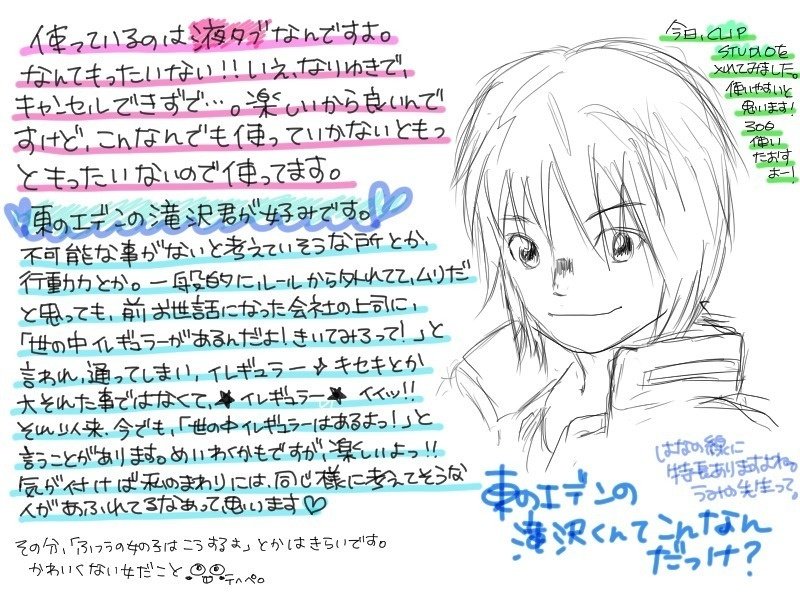 使っているのは液タブなんですよ。
なんてもったいない!!いえ、なりゆきで、
キャンセルできずで…。楽しいから良いんで
すけど、こんなんでも使っていかないともっ
ともったいないので使ってます。
東のエデンの滝沢君が好みです。
不可能な事がないと考えていそうな所とか、
行動力とか。一般的にルールから外れてて、ムリだ
と思っても、前お世話になった会社の上司に、
「世の中イレギュラーがあるんだよ!きいてみろって!」と
言われ、通ってしまい、イレギュラー☆キセキとか
大それた事ではなくて、★イレギュラー★イイッ!!
それ以来、今でも、「世の中イレギュラーはあるよっ!」と
言うことがあります。めいわくかもですが、楽しいよっ!!
気が付けば私のまわりには、同じ様に考えてそうな
人があふれてるなあって思います♡
その分、「ふつうの女の子はこうするよ」とかはきらいです。
かわいくない女だこと
テヘペ。
今日、CLIP
STUDIOを
入れてみました。
使いやすいと
思います!
30日
使い
たおす
よー!
はなの線に
特長ありますよね。
うみの先生って。
東のエデンの
滝沢くんてこんなん
だっけ?